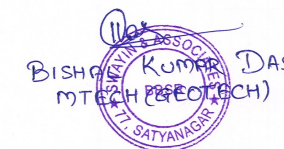 BISHAL KUMAR DAS
MTECH (GEOTECH)
SWAYIN & ASSOCIATES
BBSR
77, SATYANAGAR